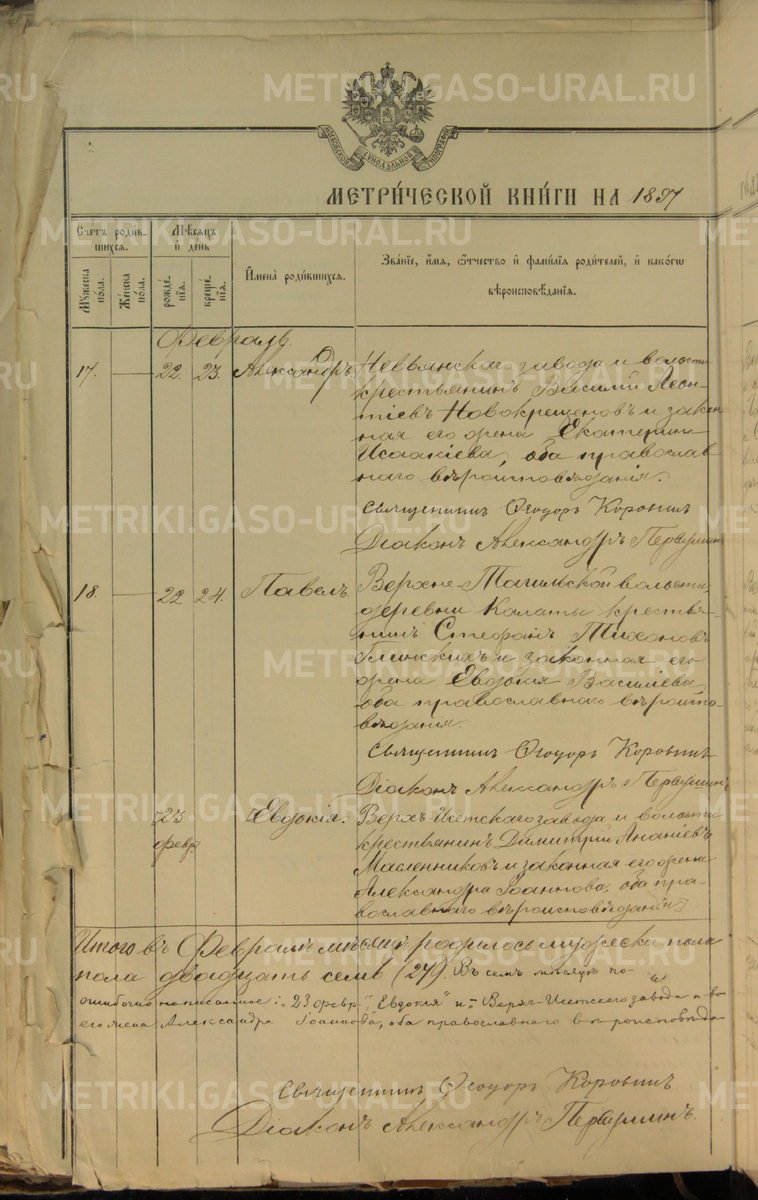 МОСКОВСКОЙ СѴНОДАЛЬНОЙ ТИПОГРАФІИ
МЕТРИ́ЧЕСКОЙ КНИ́ГИ НА 1897
Счетъ роди́вшихся.
Мѣсяцъ и день
Мꙋжеска по́ла.
Же́нска по́ла.
рожде́нїѧ.
креще́нїѧ.
Имена̀ роди́вшихся.
Зва́нїе, и́мѧ, ѻ́тчество и фами́лїѧ роди́телей, и како́гѡ вѣроисповѣ́данїѧ.
Февраль.
17. 22. 23. Александръ
Невьянскаго завода и волости
крестьянинъ Василий Леон-
тіевъ Новокрещеновъ и закон-
ная его жена Екатерина
Исаакіева, оба православ-
наго вѣроисповѣданія.
Священникъ Ѳеодоръ Коровин
Діаконъ Александръ Первушин
18. 22 24. Павелъ.
Верхне-Тагильской волости,
деревни Калаты крестья-
нинъ Стефанъ Тихоновъ
Глинскихъ и законная его
жена Евдокія Василіева,
оба православнаго вѣроиспо-
вѣданія.
Священникъ Ѳеодоръ Коровин
Діаконъ Александръ Первушинъ
23 февр Евдокія.
Верхъ-Исетскаго завода и волости
крестьянинъ Димитрій Ананіевъ
Масленниковъ и законная его жена
Александра Іоаннова, оба пра-
вославнаго вѣроисповѣданія
Итого въ Февралѣ мѣсяцѣ родилось мужеска пола
пола двадцать семь (27). Въ семъ мѣсяцѣ по
ошибочно написанное: "23 февр." "Евдокія" и "Верхъ-Исетскаго завода и во
его жена Александра Іоаннова", оба православнаго вѣроисповѣда
Священникъ Ѳеодоръ Коровин
Діаконъ Александръ Первушинъ.
METRIKI.GASO-URAL.RU